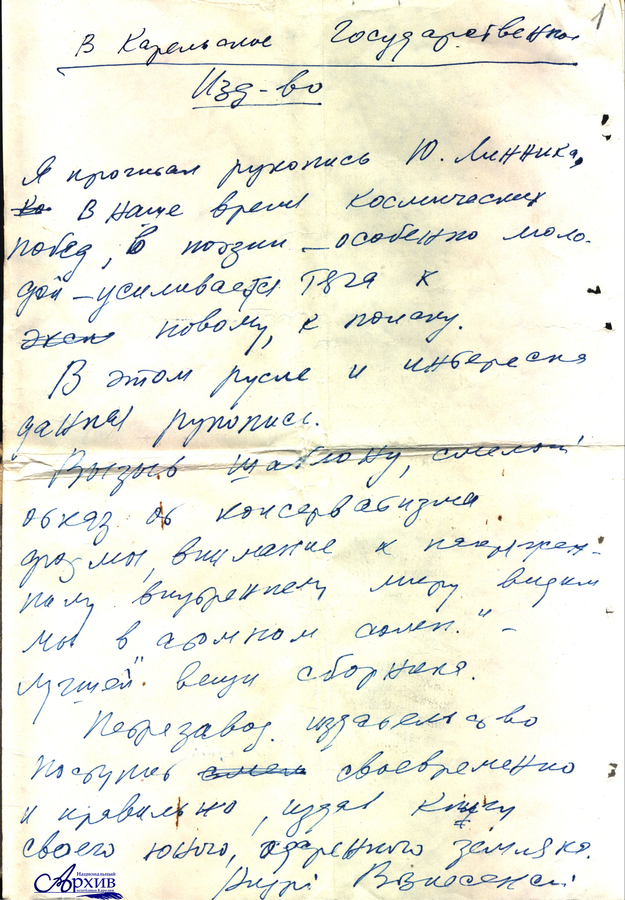 1
В Карельское Государственное
Изд-во
Я прочитал рукопись Ю. Линника,
В наше время космических
побед, в поэзии – особенно моло-
дой – усиливается тяга к
новому, к поиску.
В этом русле и интересна
данная рукопись.
Вызыв шаблону, смелый
отказ от консерватизма
формы, внимание к напряжен-
ному внутреннему миру видим
мы в "атомном
лучшей вещи сборника.
Петрозавод. издательство
поступит своевременно
и правильно, издав книгу
своего юного, одаренного земляка.
Андрей Вознесенский
Национальный
Архив
Республики Карелия